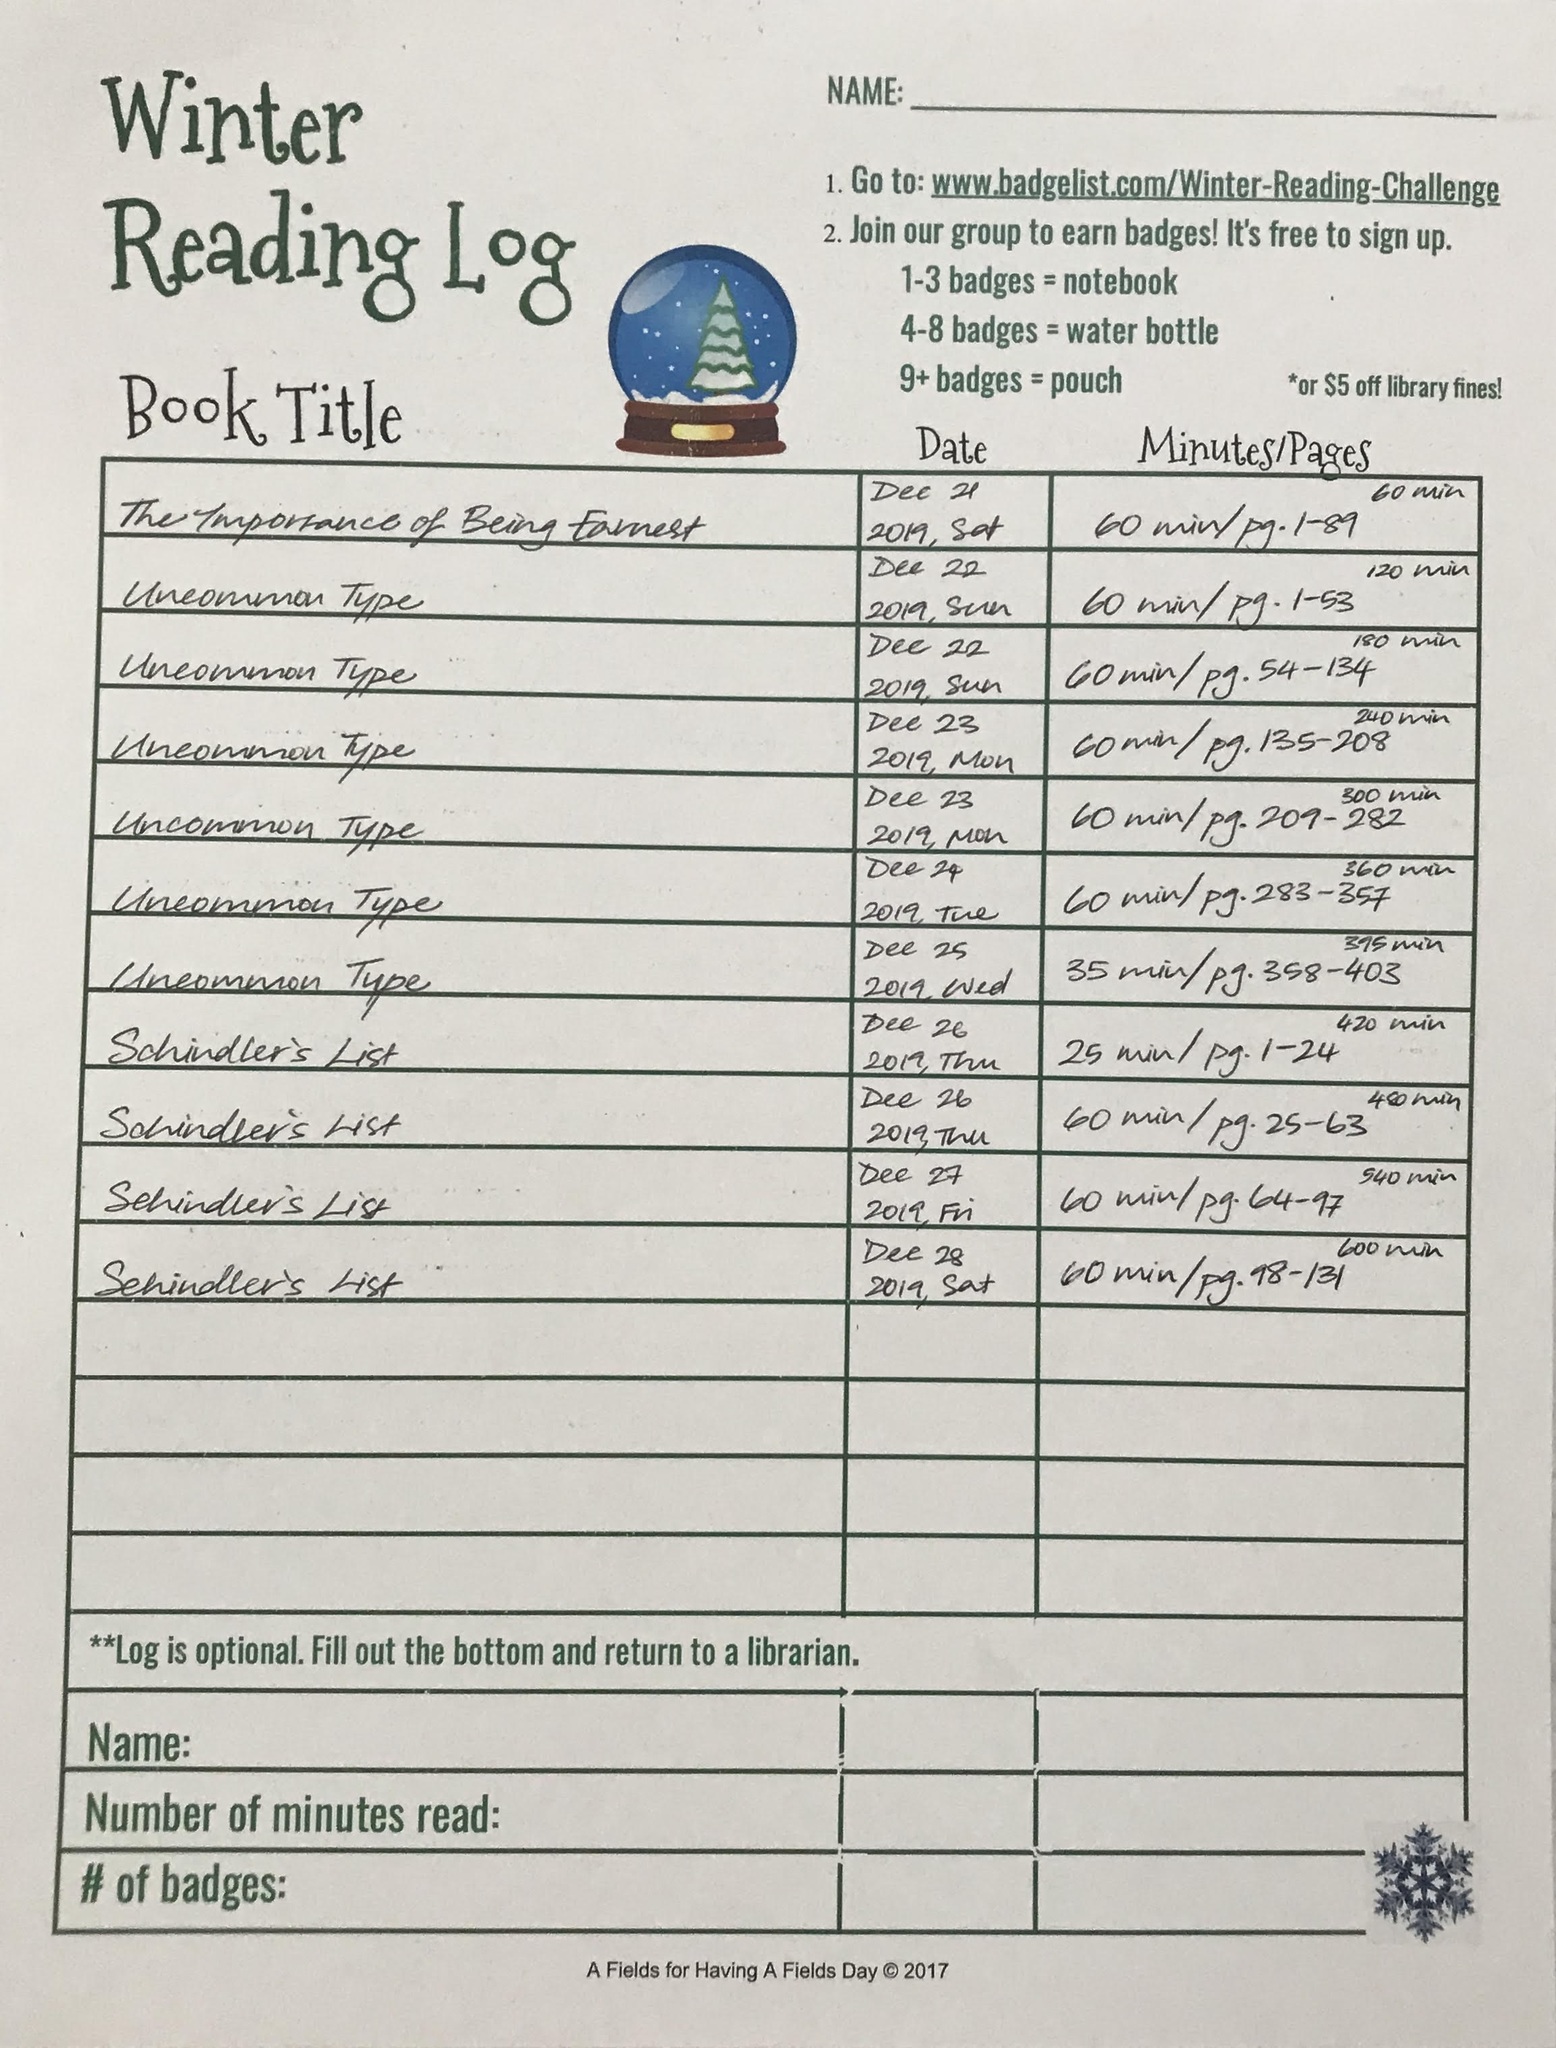 Winter
Reading Log
NAME:
1. Go to: www.badgelist.com/Winter-Reading-Challenge
2. Join our group to earn badges! It's free to sign up.
1-3 badges = notebook
4-8 badges = water bottle
9+ badges = pouch
*or $5 off library fines!
Book Title
Date
Minutes/Pages
The Importance of Being Earnest
Dec 21
2019, Sat
60 min
60 min/pg. 1-89
Uncommon Type
Dec 22
2019, Sun
120 min
60 min/ pg. 1-53
Uncommon Type
Dec 22
2019, Sun
180 min
60 min/ pg. 54-134
Uncommon Type
Dec 23
2019, Mon
240 min
60 min/ pg. 135-208
Uncommon Type
Dec 23
2019, Mon
300 min
60 min/ pg. 209-282
Uncommon Type
Dec 24
2019, Tue
360 min
60 min/ pg. 283-357
Uncommon Type
Dec 25
2019, Wed
395 min
35 min/ pg. 358-403
Schindler's List
Dec 26
2019, Thu
420 min
25 min/ pg. 1-24
Schindler's List
Dec 26
2019, Thu
480 min
60 min/ pg. 25-63
Schindler's List
Dec 27
2019, Fri
540 min
60 min/ pg. 64-97
Schindler's List
Dec 28
2019, Sat
600 min
60 min/pg. 98-131
**Log is optional. Fill out the bottom and return to a librarian.
Name:
Number of minutes read:
# of badges:
A Fields for Having A Fields Day © 2017